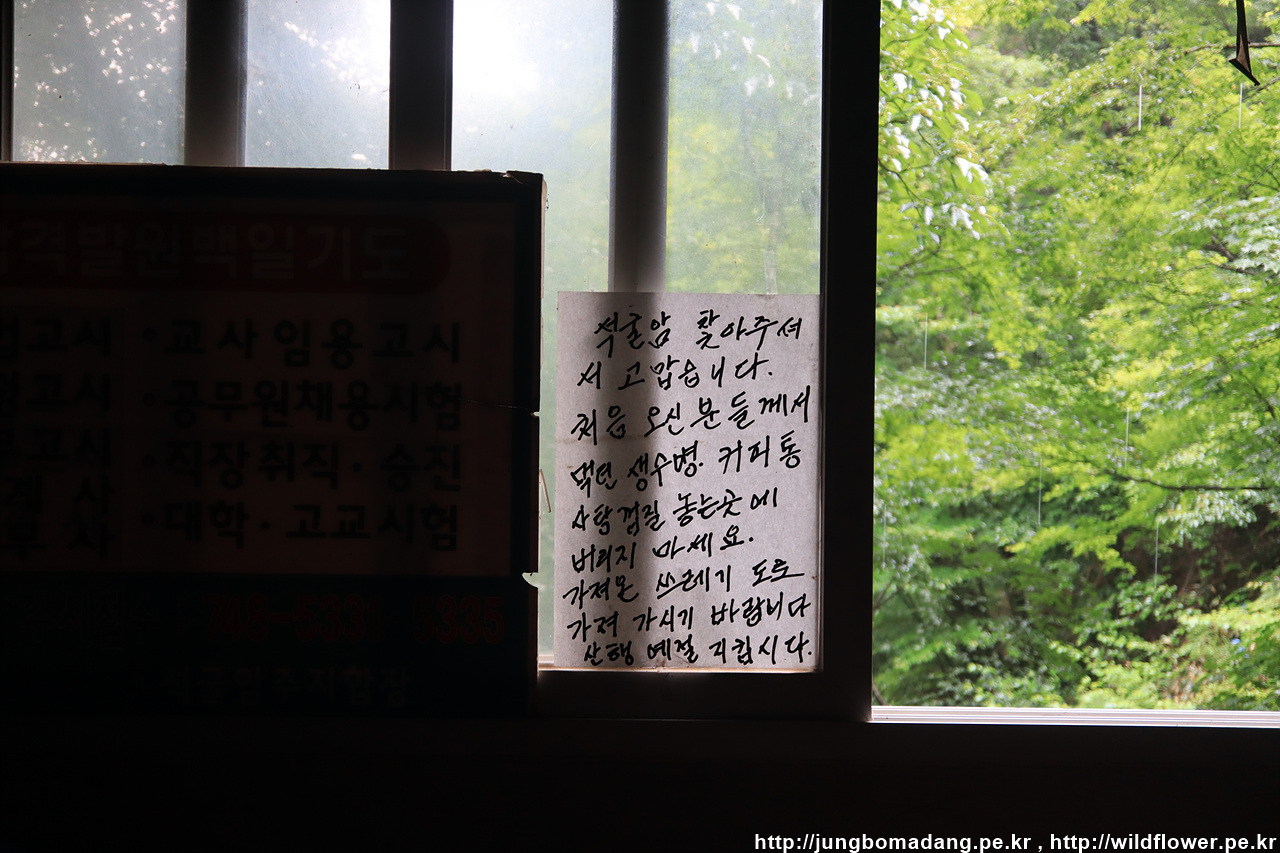 합격발원백일기도
고시 • 교사 임용고시
고시 • 공무원채용시험
고시 • 직장취직 · 승진
경 사 • 대학 · 고교시험
사
석굴암 찾아주셔
서 고맙읍니다.
처음 오신 분들께서
먹던 생수병. 커피통
사탕껍질 놓는곳에
버리지 마세요.
가져온 쓰레기 도로
가져 가시기 바랍니다
산행 예절 지킵시다.
http://jungbomadang.pe.kr , http://wildflower.pe.kr